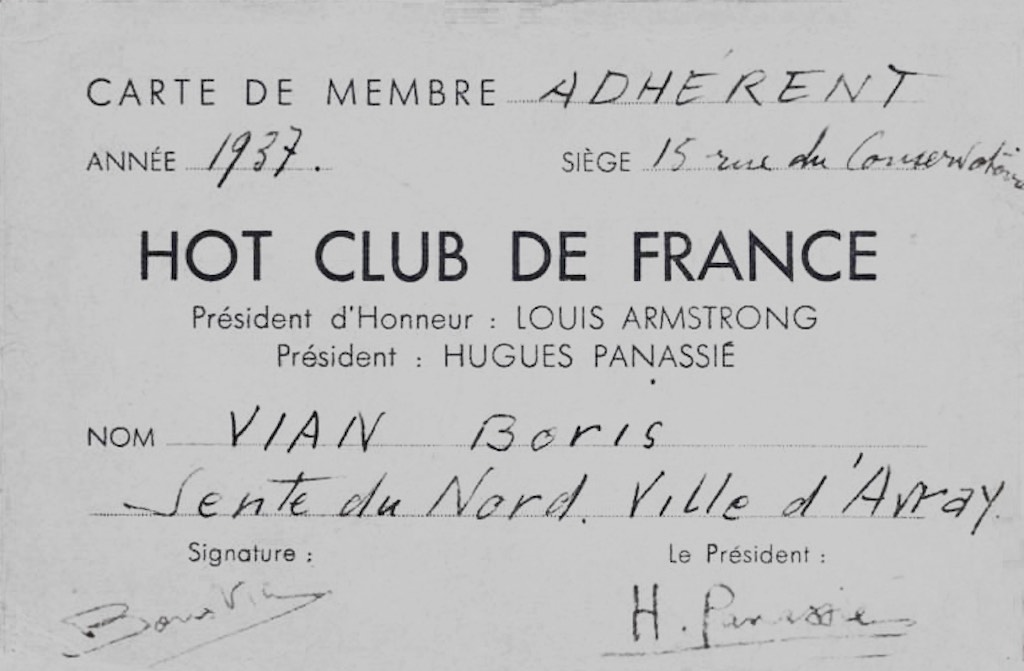 CARTE DE MEMBRE ADHÉRENT
ANNÉE 1937. SIÈGE 15 rue du Conservatoire
HOT CLUB DE FRANCE
Président d'Honneur : LOUIS ARMSTRONG
Président : HUGUES PANASSIÉ
NOM VIAN Boris
Sente du Nord. Ville d'Avray.
Signature : Le Président :
Boris Vian H. Panassié